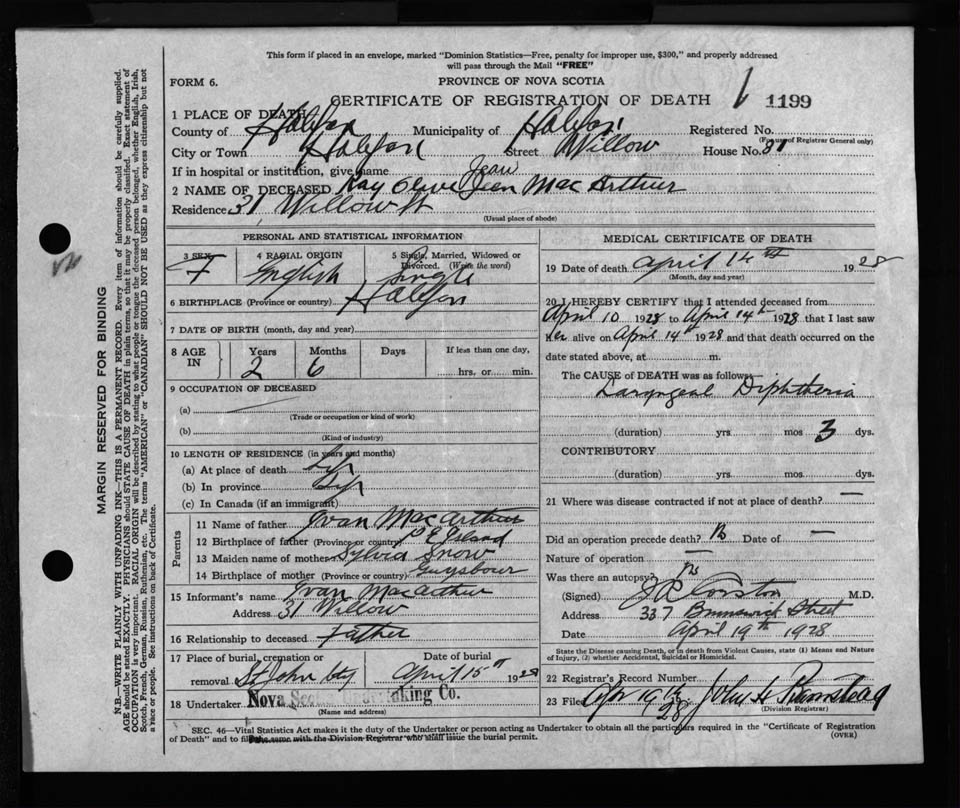 This form if placed in an envelope, marked "Dominion Statistics—Free, penalty for improper use, $300," and properly addressed
will pass through the Mail "FREE"
FORM 6.
PROVINCE OF NOVA SCOTIA
CERTIFICATE OF REGISTRATION OF DEATH 1199
1 PLACE OF DEATH
County of Halifax Municipality of Halifax Registered No.
(For use of Registrar General only)
City or Town Halifax Street Willow House No. 31
If in hospital or institution, give name
Jean
2 NAME OF DECEASED Kay Olive Jeen MacArthur
Residence 31 Willow St
(Usual place of abode)
PERSONAL AND STATISTICAL INFORMATION
3 SEX F
4 RACIAL ORIGIN English
5 Single, Married, Widowed or Divorced. (Write the word) Single
6 BIRTHPLACE (Province or country) Halifax
7 DATE OF BIRTH (month, day and year)
8 AGE IN Years 2 Months 6 Days If less than one day, hrs. or min.
9 OCCUPATION OF DECEASED
(a)
(Trade or occupation or kind of work)
(b)
(Kind of industry)
10 LENGTH OF RESIDENCE (in years and months)
(a) At place of death Life
(b) In province Life
(c) In Canada (if an immigrant)
Parents
11 Name of father Ivan MacArthur
12 Birthplace of father (Province or country) P E Island
13 Maiden name of mother Sylvia Snow
14 Birthplace of mother (Province or country) Guysbour
15 Informant's name Ivan MacArthur
Address 31 Willow
16 Relationship to deceased Father
17 Place of burial, cremation or removal St John Cty Date of burial April 15th 1928
18 Undertaker Nova Scotia Undertaking Co.
(Name and address)
MEDICAL CERTIFICATE OF DEATH
19 Date of death April 14th 1928
(Month, day and year)
20 I HEREBY CERTIFY that I attended deceased from
April 10 1928 to April 14th 1928 that I last saw
her alive on April 14th 1928 and that death occurred on the
date stated above, at m.
The CAUSE of DEATH was as follows:
Laryngeal Diphtheria
(duration) yrs mos 3 dys.
CONTRIBUTORY
(duration) yrs mos dys.
21 Where was disease contracted if not at place of death? —
Did an operation precede death? No Date of —
Nature of operation —
Was there an autopsy No
(Signed) J R Corston M.D.
Address 337 Brunswick Street
Date April 19th 1928
State the Disease causing Death, or in death from Violent Causes, state (1) Means and Nature
of Injury, (2) whether Accidental, Suicidal or Homicidal.
22 Registrar's Record Number
23 Filed Apr 19th 28 John H
(Division Registrar)
SEC. 46—Vital Statistics Act makes it the duty of the Undertaker or person acting as Undertaker to obtain all the particulars required in the "Certificate of Registration
of Death" and to file the same with the Division Registrar who shall issue the burial permit.
(OVER)
MARGIN RESERVED FOR BINDING
N.B.—WRITE PLAINLY WITH UNFADING INK—THIS IS A PERMANENT RECORD. Every item of information should be carefully supplied.
AGE should be stated EXACTLY. PHYSICIANS should STATE CAUSE OF DEATH in plain terms, so that it may be properly classified. Exact statement of
OCCUPATION is very important. RACIAL ORIGIN will be described by stating to what people or tongue the deceased person belonged, whether English, Irish,
Scotch, French, German, Russian, Ruthenian, etc. The terms "AMERICAN" or "CANADIAN" SHOULD NOT BE USED as they express citizenship but not
a race or people. See instructions on back of Certificate.